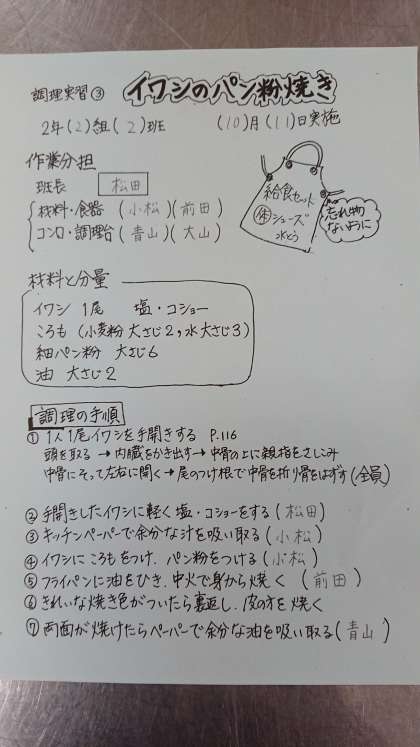 調理実習③ イワシのパン粉焼き
2年(2)組(2)班 (10)月(11)日実施
作業分担
班長 松田
材料・食器 (小松)(前田)
コンロ・調理台(青山)(大山)
給食セット
体シューズ
水とう
忘れ物
ないように
材料と分量
イワシ 1尾 塩・コショー
ころも (小麦粉 大さじ2, 水 大さじ3)
細パン粉 大さじ6
油 大さじ2
調理の手順
① 1人1尾イワシを手開きする P.116
頭を取る→内臓をかき出す→中骨の上に親指をさしこみ
中骨にそって左右に開く→尾のつけ根で中骨を折り骨をはずす(全員)
② 手開きしたイワシに軽く塩・コショーをする(松田)
③ キッチンペーパーで余分な汁を吸い取る(小松)
④ イワシにころもをつけ、パン粉をつける(小松)
⑤ フライパンに油をひき、中火で身から焼く (前田)
⑥ きれいな焼き色がついたら裏返し、皮の方を焼く
⑦ 両面が焼けたらペーパーで余分な油を吸い取る(青山)